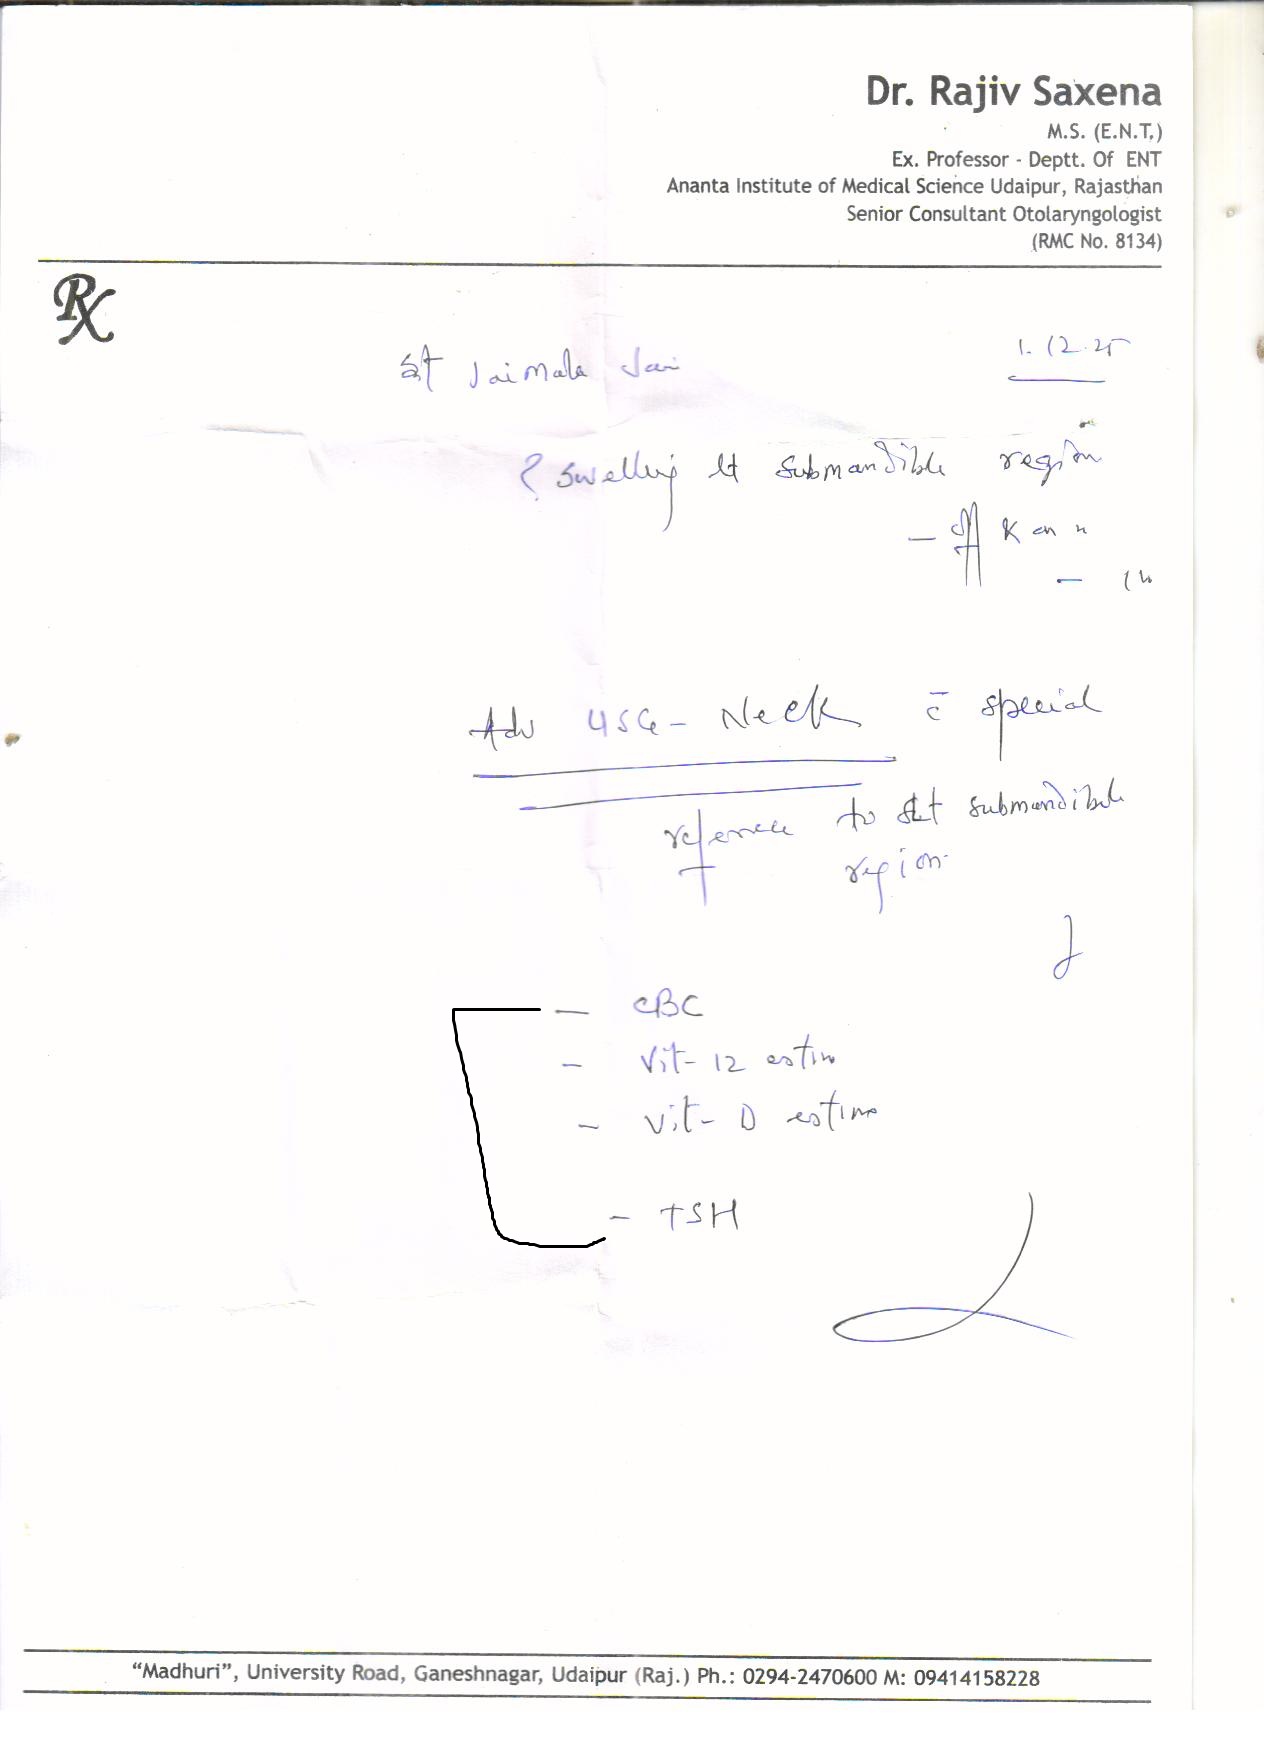 Dr. Rajiv Saxena
M.S. (E.N.T.)
Ex. Professor - Deptt. Of ENT
Ananta Institute of Medical Science Udaipur, Rajasthan
Senior Consultant Otolaryngologist
(RMC No. 8134)
Rx
1.12.25
Jaimala Jain
? Swelling lt submandible region
Adv USG - Neck c̄ special
reference to lt submandible
region.
- CBC
- Vit - 12 estim
- Vit - D estim
- TSH
“Madhuri”, University Road, Ganeshnagar, Udaipur (Raj.) Ph.: 0294-2470600 M: 09414158228